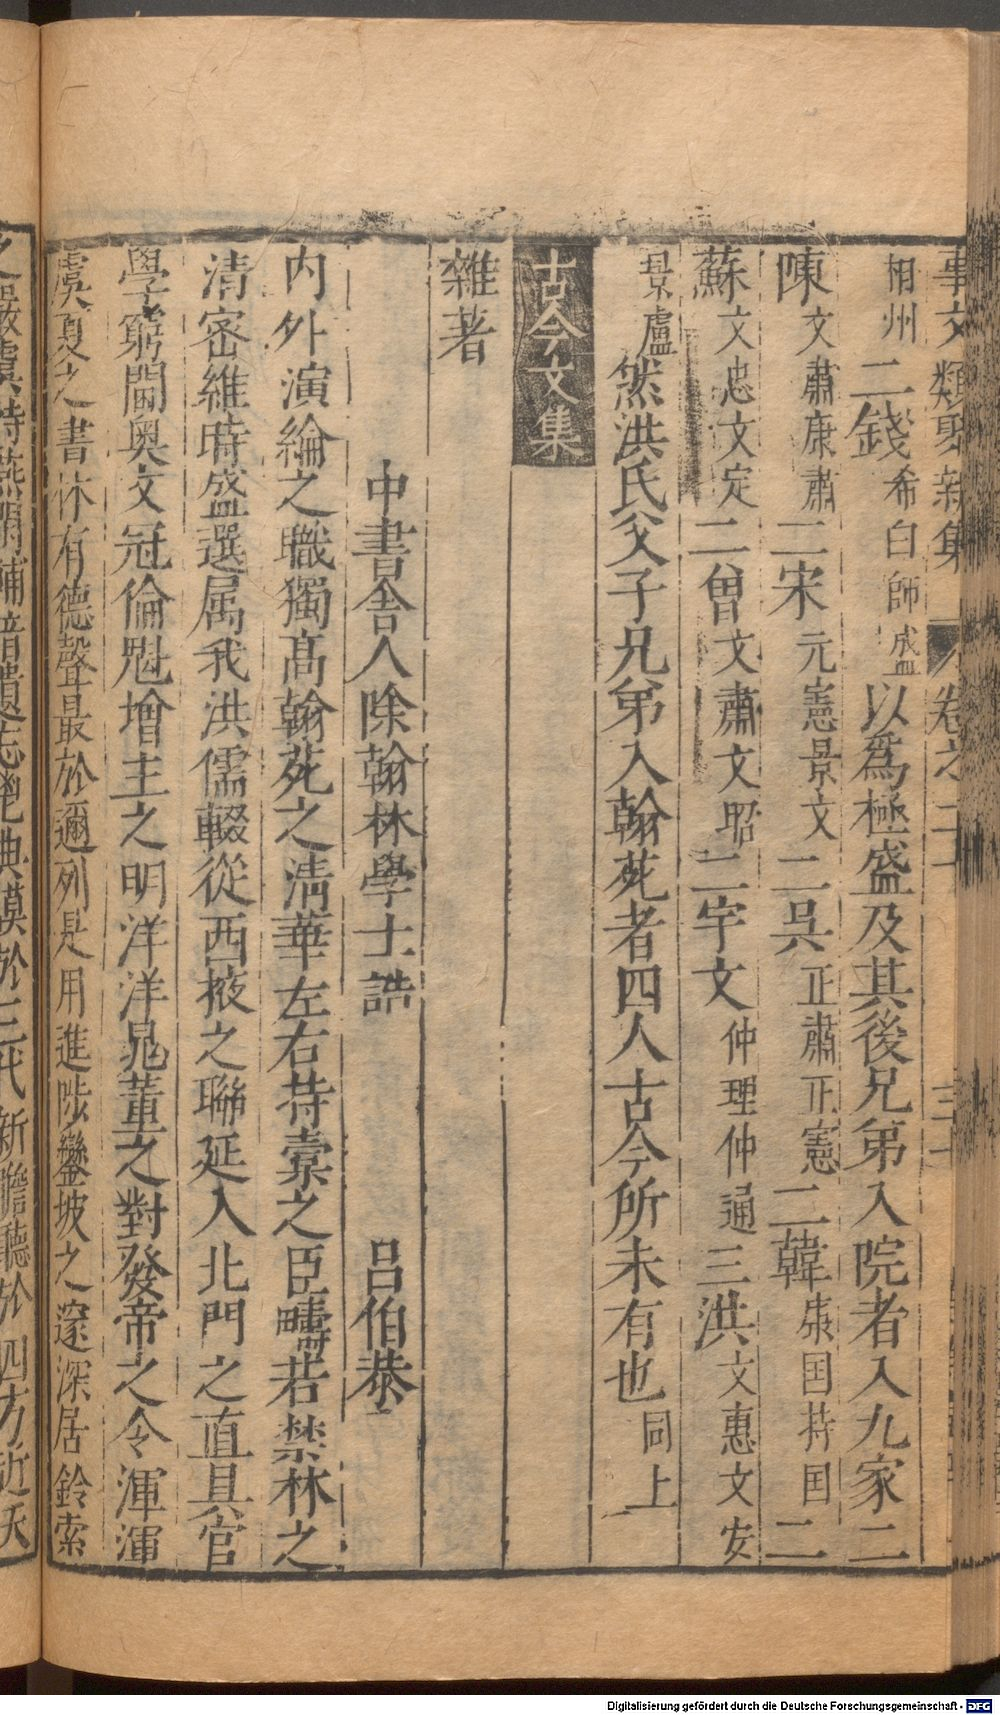 事文類聚新集 卷之二十 三十
相州二錢希白師盛以為極盛及其後兄弟入院者入九家二
陳文肅康肅二宋元憲景文二吳正肅正憲二韓康囯持囯二
蘇文忠文定二曽文肅文昭二宇文仲理仲通三洪文惠文安
景盧然洪氏父子兄弟入翰苑者四人古今所未有也同上
古今文集
雜著
中書舎人除翰林學士誥 呂伯恭
内外演綸之職獨髙翰苑之清華左右持橐之臣疇若禁林之
清宻維時盛選属我洪儒輟從西掖之聯延入北門之直具官
學窮閫奥文冠倫魁增主之明洋洋晁董之對發帝之令渾渾
虞夏之書休有德聲最於邇列是用進陟鑾坡之邃深居鈴索
之嚴虞時燕閒補㫖遺志𠒋典謨於三代新瞻聽於四方近沃
Digitalisierung gefördert durch die Deutsche Forschungsgemeinschaft - DFG